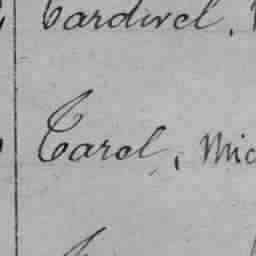 Cardwel,
Carol, Mic